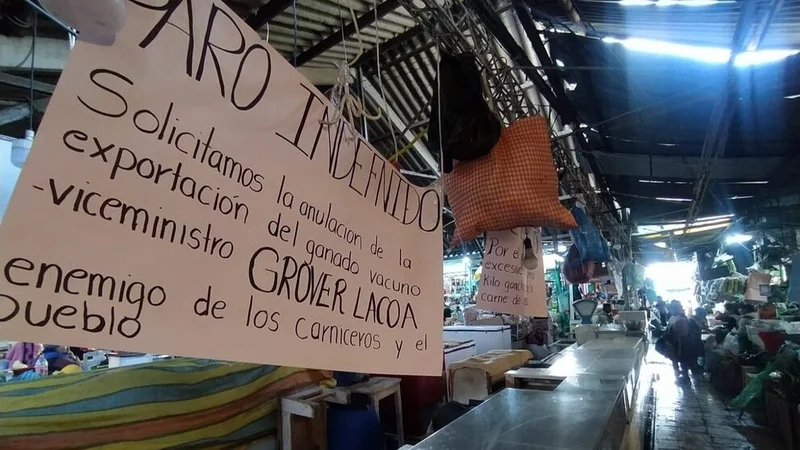 PARO INDEFNIDO
Solicitamos la anulacion de la
exportación del ganado vacuno
-viceministro GRÓVER LACOA
enemigo de los carniceros y el
pueblo
Por el
excesiv
kilo ganch
carne de